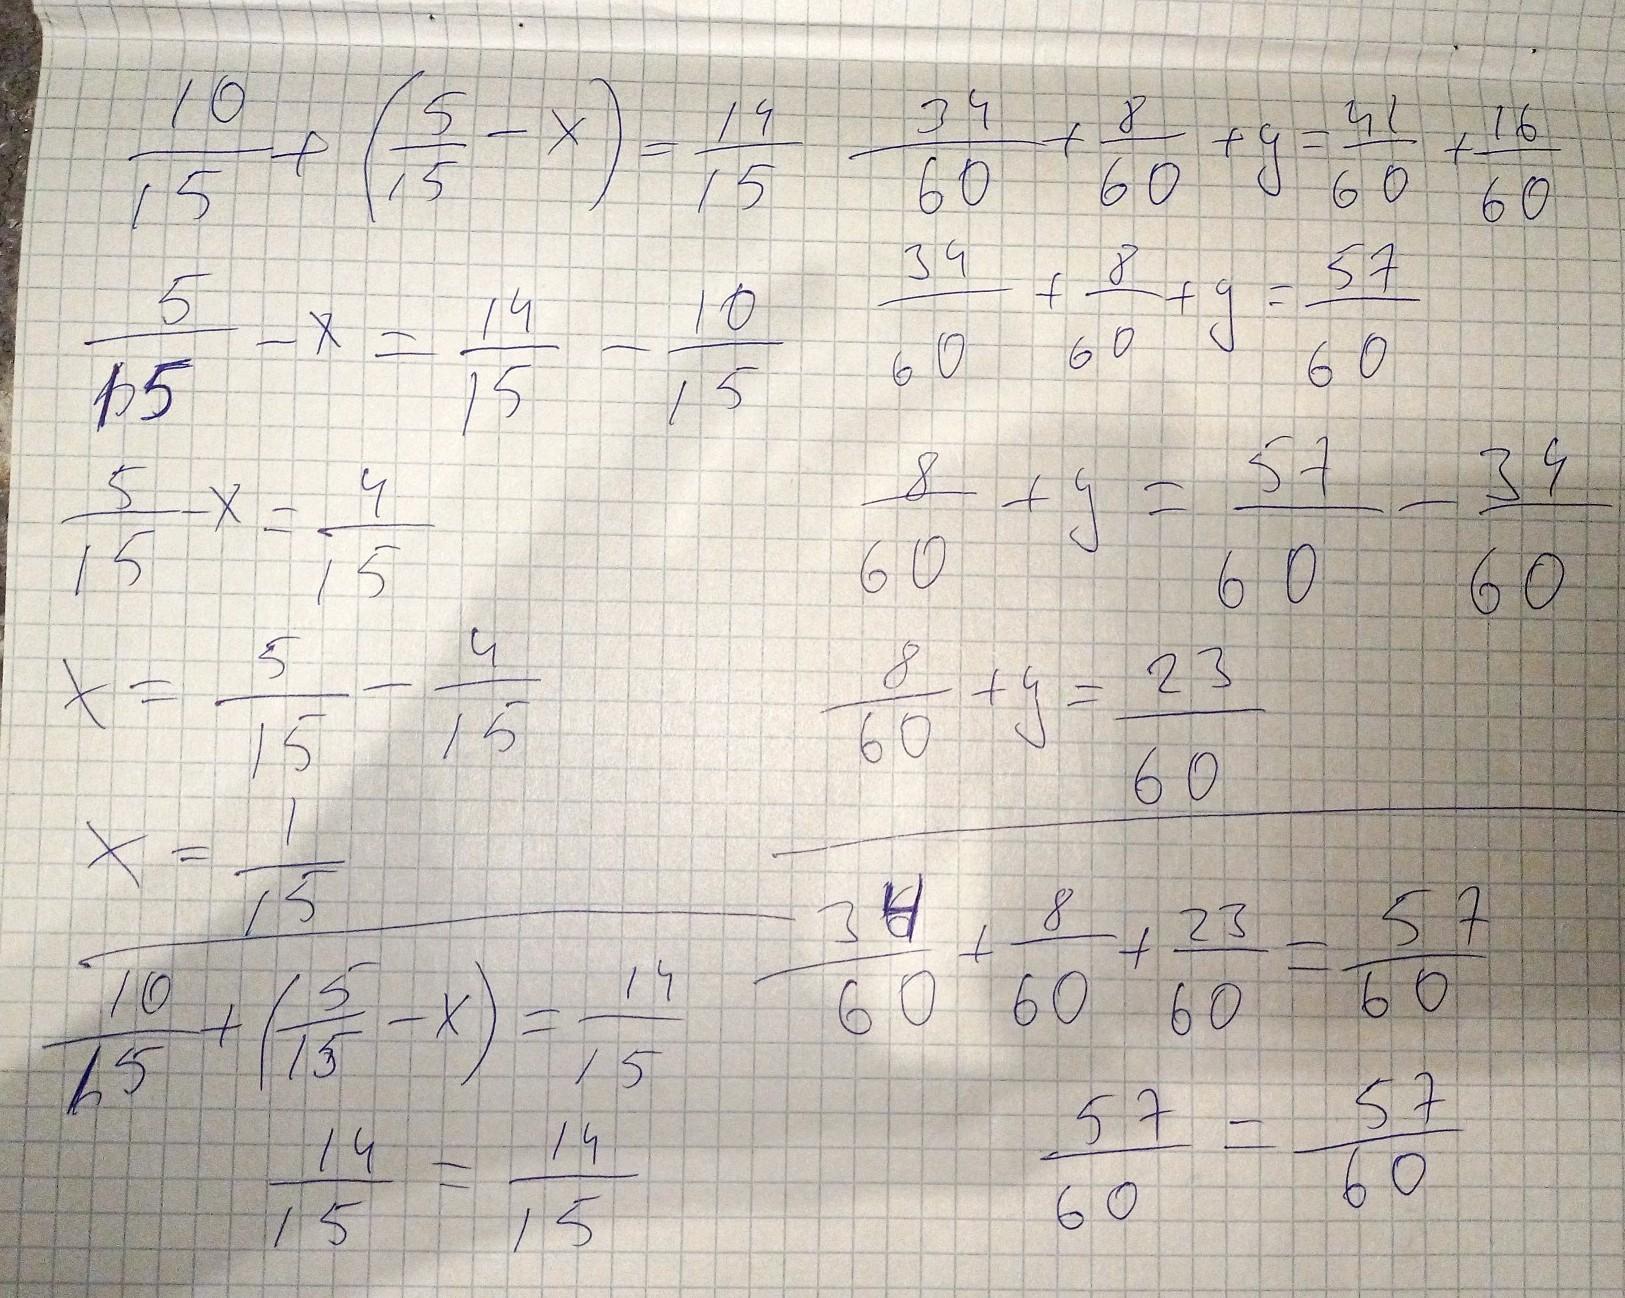 10/15 + (5/15 - x) = 14/15
5/15 - x = 14/15 - 10/15
5/15 - x = 4/15
x = 5/15 - 4/15
x = 1/15
10/15 + (5/15 - x) = 14/15
14/15 = 14/15
34/60 + 8/60 + y = 41/60 + 16/60
34/60 + 8/60 + y = 57/60
8/60 + y = 57/60 - 34/60
8/60 + y = 23/60
34/60 + 8/60 + 23/60 = 57/60
57/60 = 57/60